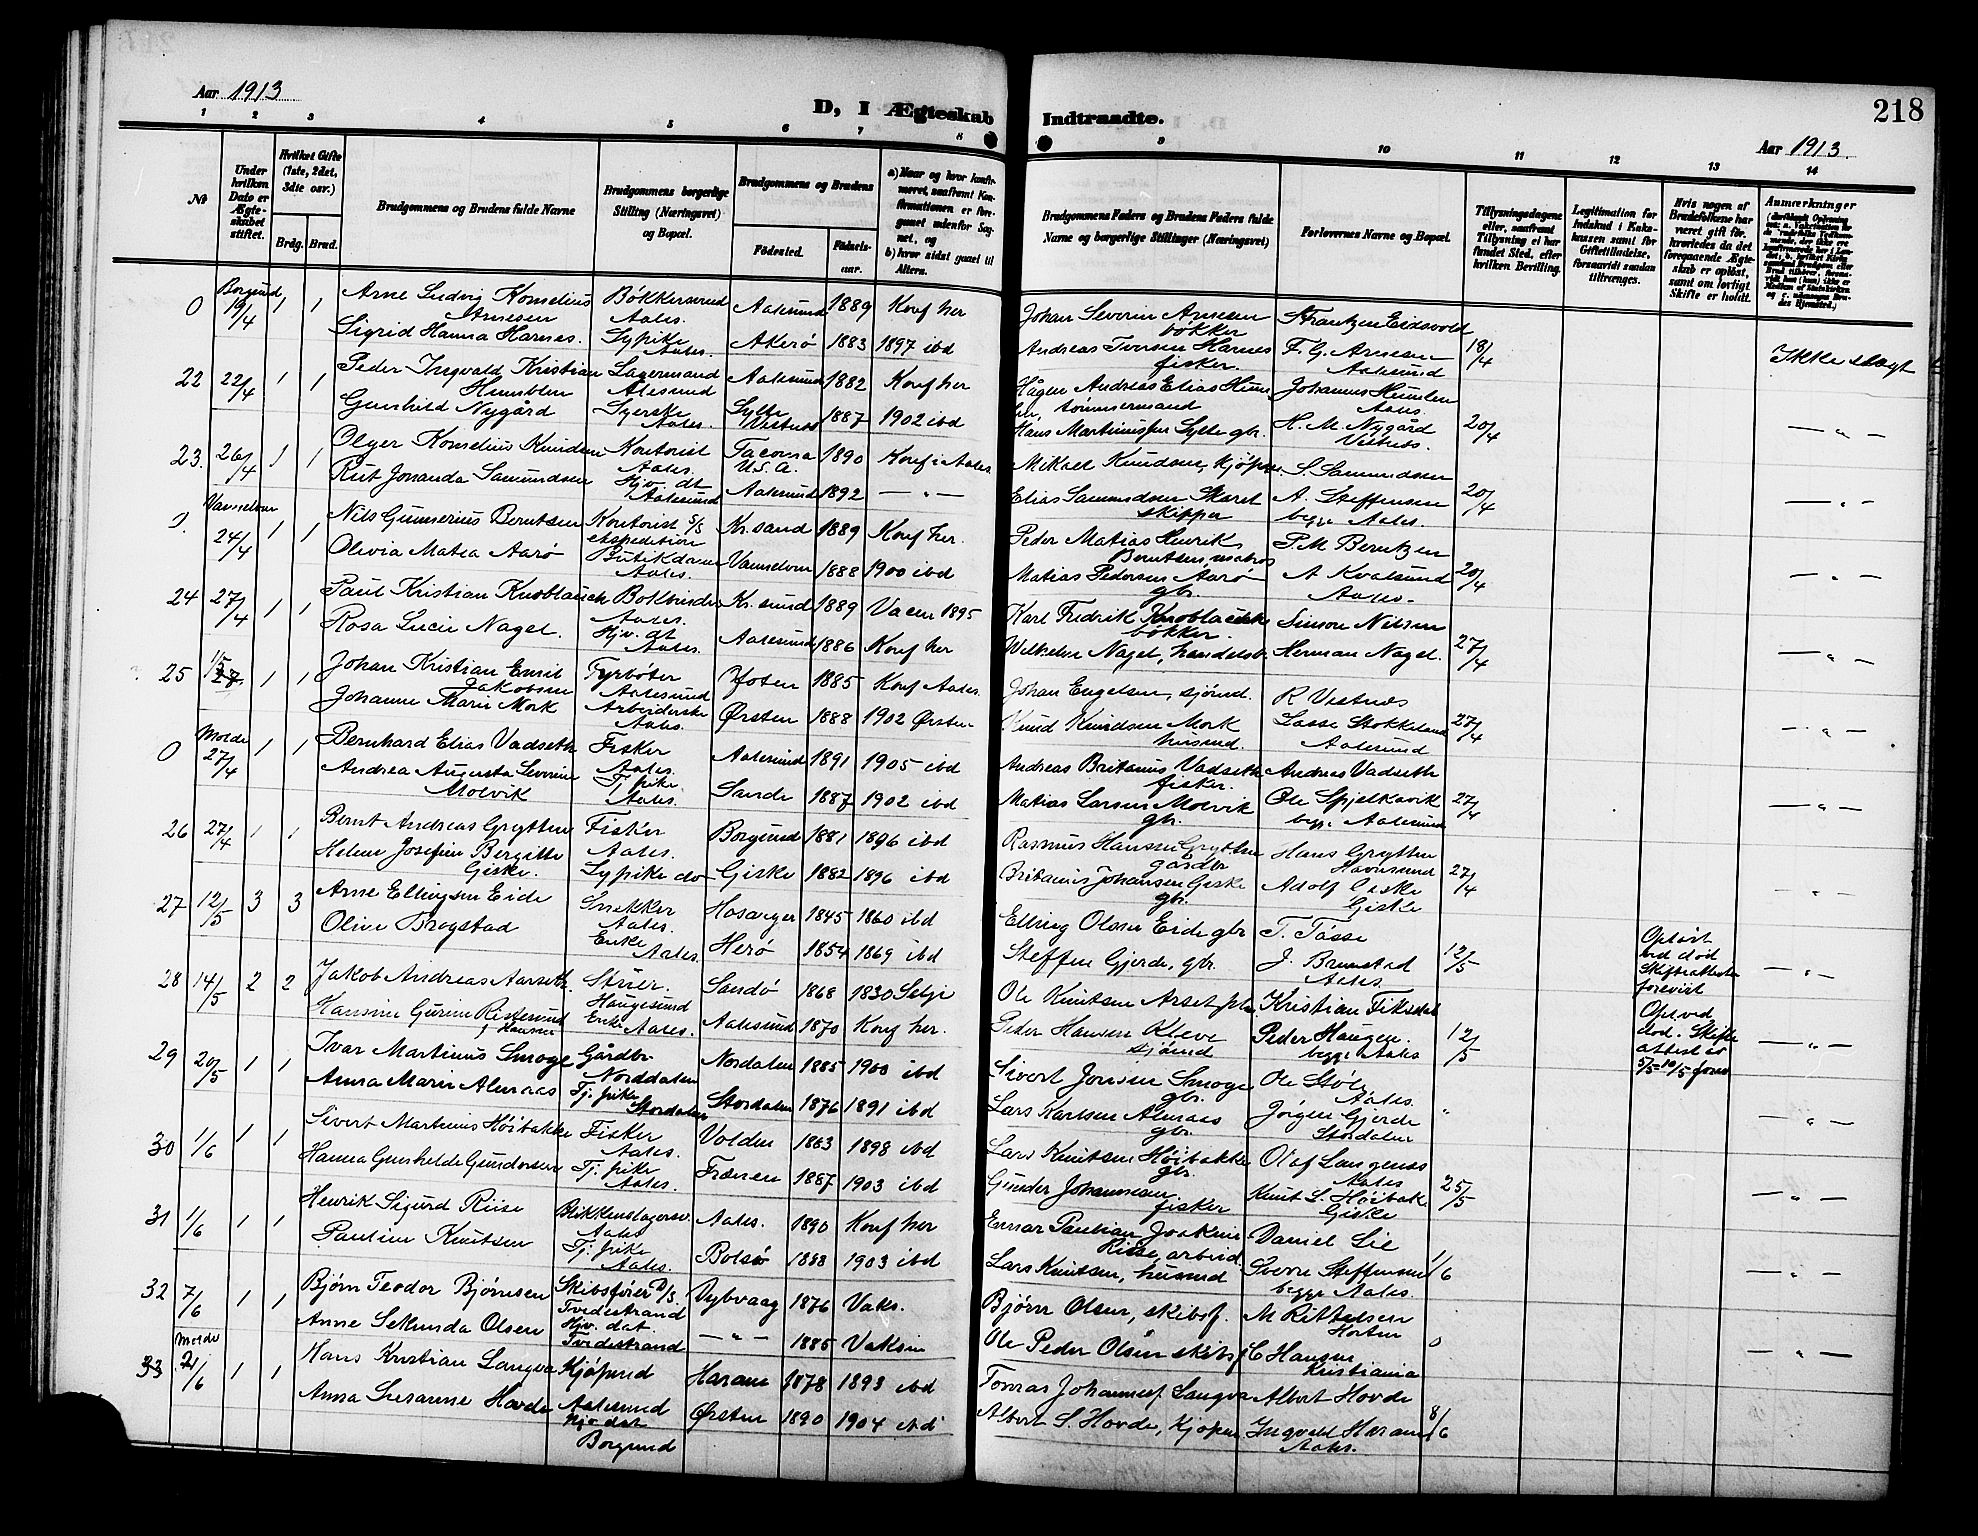 218
Aar 1913
D, I Ægteskab Indtraadte.
Aar 1913.
1 2 3 4 5 6 7 8 9 10 11 12 13 14
No
Under hvilken Dato er Ægteskabet stiftet.
Hvilket Gifte (1ste, 2det, 3die osv.)
Brdg. Brud.
Brudgommens og Brudens fulde Navne
Brudgommens borgerlige Stilling (Næringsvei) og Bopæl.
Brudgommens og Brudens
Fødested. Fødselsaar.
a) Naar og hvor konfirmeret, saafremt Konfirmationen er foregaaet udenfor Sognet, og
b) hvor sidst gaaet til Alters.
Brudgommens Faders og Brudens Faders fulde Navne og borgerlige Stillinger (Næringsvei)
Forlovernes Navne og Bopæl.
Tillysningsdagene eller, saafremt Tillysning ei har fundet Sted, efter hvilken Bevilling.
Legitimation for Indskud i Enkekassen samt for Giftetilladelse, forsaavidt saadan tiltrænges.
Hvis nogen af Brudefolkene har været gift før, hvorledes da det foregaaende Ægteskab er opløst, samt om lovligt Skifte er holdt.
Anmærkninger
0 Borgund 19/4 1 1 Arne Ludvig Kornelius Arnesen Bøkkersvend Aales. Aalesund 1889 Konf her Johan Severin Arnesen bøkker Frantzen Eidsvold
Sigrid Hanna Harnes. Sypike Aales. Akerø 1883 1897 ibd Andreas Iversen Harnes fisker. F. G. Arnesen Aalesund 18/4 Ikke slægt
22 22/4 1 1 Peder Ingvald Kristian Humblen Lagermand Alesund Aalesund 1882 Konf her Hågen Andreas Elias Humlen, tømmermand Johannes Humlen Aales.
Gunhild Nygård Syerske Aales. Sylte Vestnes 1887 1902 ibd Hans Martinus Sylte gbr. H. M. Nygård Vestnes. 20/4 — " —
23. 26/4 1 1 Olger Kornelius Knudsen Kontorist Aales. Tacoma U.S.A. 1890 Konf i Aales. Mikael Knudsen, kjøpm. S. Samundsen
Rut Jonanda Samundsen Hjv. dt Aalesund Aalesund 1892 — " — Elias Samundsen Skaret skipper A. Steffensen begge Aales. 20/4 — " —
0. Vannelven 24/4 1 1 Nils Gunnerius Berntsen Kontorist ekspedition Kr.sund 1889 Konf her. Peder Matias Henrik Berntsen, matros P. M. Berntzen
Olivia Matea Aarø Butikdame Aales. Vannelven 1888 1900 ibd Matias Pedersen Aarø gbr. A Kvalsund Aales. 20/4 — " —
24 27/4 1 1 Paul Kristian Knoblauch Bokbinder Aales. Kr.sund 1889 Vacen 1895 Karl Fredrik Knoblauch bøkker. Simon Nilsen
Rosa Lucie Nagel. Hjv. dt Aales. Aalesund 1886 Konf her Wilhelm Nagel, handelsb. Herman Nagel. 27/4 — " —
25 1/5 1 1 Johan Kristian Emil Jakobsen Fyrbøter Aalesund Ofoten 1885 Konf Aales. Johan Engelsen, sjømd. R Vestnes
Johanne Marie Mork Arbeiderske Aales. Ørsten 1888 1902 Ørsten Knud Knudsen Mork husmd. Lasse Stokkeland Aalesund 27/4 — " —
0 Molde 27/4 1 1 Bernhard Elias Vadseth Fisker Aales. Aalesund 1891 1905 ibd Andreas Britanius Vadseth fisker. Andreas Vadseth
Andrea Augusta Severine Molvik Tj. pike Aales. Sande 1887 1902 ibd Matias Larsen Molvik gbr. Ole Spjelkavik begge Aalesund 27/4 — " —
26 27/4 1 1 Bernt Andreas Grytten Fisker Aales. Borgund 1881 1896 ibd Rasmus Hansen Grytten gårdbr Hans Grytten
Helene Josefine Bergitte Giske. Sypike do Giske 1882 1896 ibd Britanius Johansen Giske gbr. Adolf Giske Giske 27/4 — " —
27 12/5 3 3 Arne Ellingsen Eide Snekker Aales. Hosanger 1845 1860 ibd Elling Olsen Eide gbr T. Tåsse
Oline Brogstad Enke Aales. Herø 1854 1869 ibd Steffen Gjerde, gbr. J. Brunstad Aales. 12/5 Opløst ved død Skifteattester forevist — " —
28 14/5 2 2 Jakob Andreas Aarseth. Stuer. Haugesund Sandø 1868 1830 Selje Ole Knutsen Arset Kristian Fiksdal
Hansine Gurine Ristesund f. Hansen Enke Aales. Aalesund 1870 Konf her. Peder Hansen Kleve sjømd Peder Haugen. begge Aales 12/5 Opl. ved død. Skifte attest — " —
29 20/5 1 1 Ivar Martinus Smoge Gårdbr Norddalen Nordalen 1885 1900 ibd Sivert Jonsen Smoge gbr. Ole Støle Aales.
Anna Marie Almaas Tj. pike Stordalen Stordalen 1876 1891 ibd Lars Karlsen Almaas gbr. Jørgen Gjerde Stordalen " — " —
30 1/6 1 1 Sivert Martinus Høibakke Fisker Aales. Volden 1883 1898 ibd Lars Knutsen Høibakke gbr. Olaf Langenes Aales
Hanna Gunhilde Gundersen Tj. pike Aales. Frænen 1887 1903 ibd Gunder Johannesen fisker Knut L. Høibak Giske 25/5 — " —
31 1/6 1 1 Henrik Sigurd Riise Blikkenslagersv. Aales Aales. 1890 Konf her Ennar Paulian Joakim Riise, arbeid Daniel Lie
Pauline Knutsen Tj. pike Aales. Bolsø 1888 1903 ibd Lars Knutsen, husmd Sverre Steffensen begge Aales. 1/6 — " —
32 7/6 1 1 Bjørn Teodor Bjørnsen Skibsfører Tvedestrand Dybvaag 1876 Vaks. Bjørn Olsen, skibsf. M Rittelsen Horten
Anne Sekunda Olsen Hjv. dat. Tvedestrand — " — 1885 Vaksin Ole Peder Olsen skibsf C Hansen Kristiania 0 — " —
33 Molde 7/6 1 1 Hans Kristian Langva Kjøpmd Aalesund Haram 1878 1893 ibd Tomas Johannes Langva Albert Hovde
Anna Susanne Hovde Hjv dat Borgund Ørsten 1890 1904 ibd Albert S. Hovde, Kjøpm Ingvald Haram Aales. 8/6 — " —